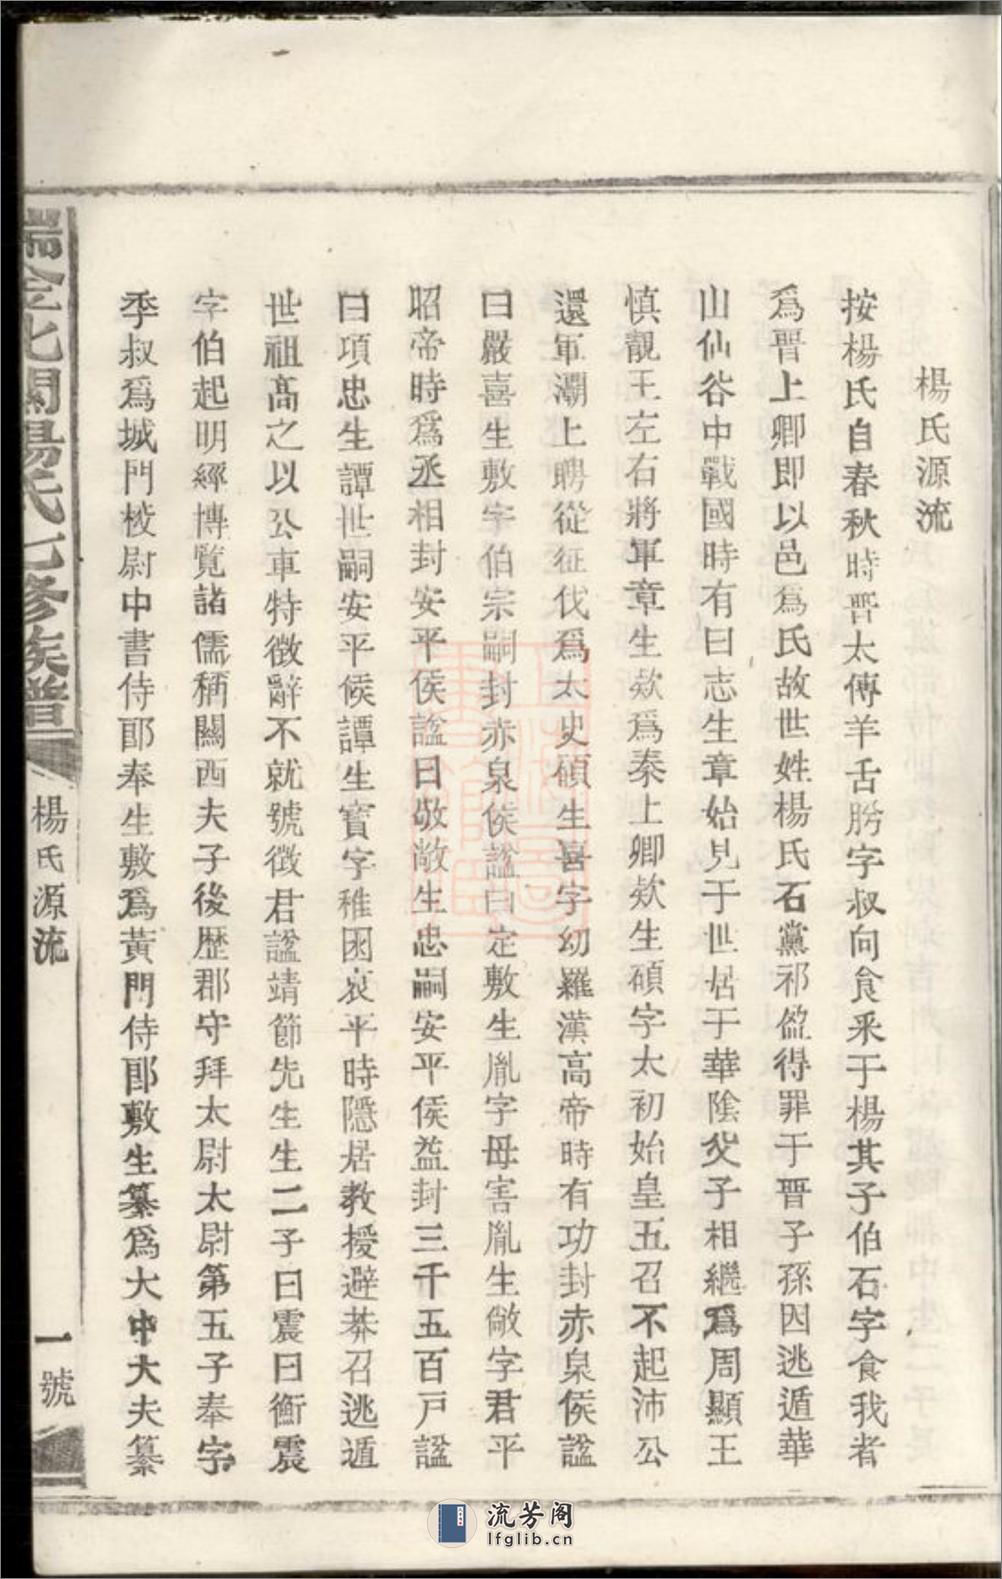 楊氏源流
按楊氏自春秋時晋太傳羊舌肹字叔向食采于楊其子伯石字食我者
爲晋上卿即以邑爲氏故世姓楊氏石黨祁盈得罪于晋子孫因逃遁華
山仙谷中戰國時有曰志生章始見于世居于華陰父子相繼爲周顯王
慎靚王左右將軍章生欵爲秦上卿欵生碩字太初始皇五召不起沛公
還軍灞上聘從征伐爲太史碩生喜字幼羅漢高帝時有功封赤泉侯諡
曰嚴喜生敷字伯宗嗣封赤泉侯諡曰定敷生胤字毋害胤生敞字君平
昭帝時爲丞相封安平侯諡曰敬敞生忠嗣安平侯益封三千五百戸諡
曰項忠生譚世嗣安平候譚生寳字稚囦哀平時隱居教授避莽召逃遁
世祖髙之以公車特徴辭不就號徴君諡靖節先生生二子曰震曰衡震
字伯起明經博覽諸儒稱關西夫子後歷郡守拜太尉太尉第五子奉字
季叔爲城門校尉中書侍郎奉生敷爲黃門侍郎敷生纂爲大中大夫纂
瑞金北關楊氏七修族譜
楊氏源流
一號
流芳阁
lfglib.cn